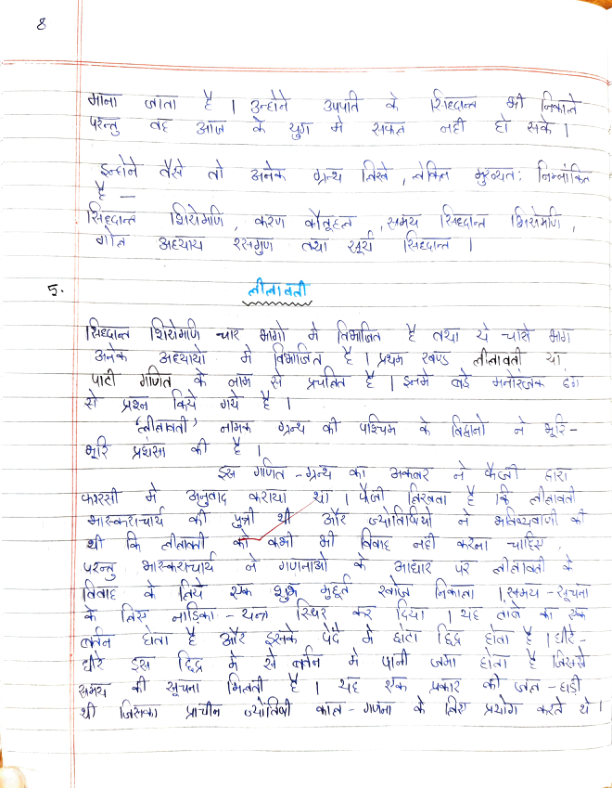 8
माना जाता है । उन्होने उपपति के सिद्दान्त भी निकाले
परन्तु वह आज के युग मे सफल नही हो सके ।
इन्होने वैसे तो अनेक ग्रन्थ लिखे , लेकिन मुख्यत: निम्नांकित
है —
सिद्दान्त शिरोमणि , करण कौतूहल , समय सिद्दान्त शिरोमणि ,
गोल अध्याय रसगुण तथा सूर्य सिद्दान्त ।
5. लीलावती
सिद्दान्त शिरोमणि चार भागो मे विभाजित है तथा ये चारो भाग
अनेक अध्यायो मे विभाजित है । प्रथम खण्ड लीलावती या
पाटी गणित के नाम से प्रचलित है । इनमे बडे मनोरंजक ढंग
से प्रश्न किये गये है ।
'लीलावती' नामक ग्रन्थ की पश्चिम के विद्वानो ने भूरि-
भूरि प्रशंसा की है ।
इस गणित - ग्रन्थ का अकबर ने फैजी द्वारा
फारसी मे अनुवाद कराया था । फैजी लिखता है कि लीलावती
भास्कराचार्य की पुत्री थी और ज्योतिषियो ने भविष्यवाणी की
थी कि लीलावती को कभी भी विवाह नही करना चाहिए ,
परन्तु भास्कराचार्य ने गणनाओ के आधार पर लीलावती के
विवाह के लिये एक शुभ मुहूर्त खोज निकाला । समय - सूचना
के लिए नाडिका - यन्त्र स्थिर कर दिया । यह तांबे का एक
बर्तन होता है और इसके पेंदे मे छोटा छिद्र होता है । धीरे -
धीरे इस छिद्र मे से बर्तन मे पानी जमा होता है जिससे
समय की सूचना मिलती है । यह एक प्रकार की जल - घड़ी
थी जिसका प्राचीन ज्योतिषी काल - गणना के लिए प्रयोग करते थे ।